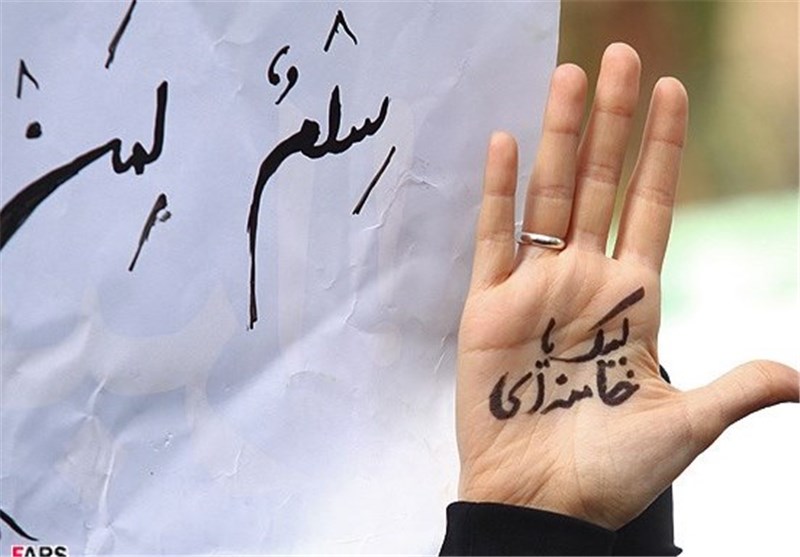 سِلْمٌ لِمَنْ
لبیک یا
خامنه‌ای
FARS